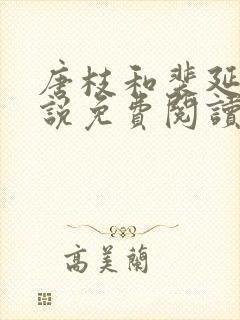 唐枝和裴延
說免費閱讀
高美蘭